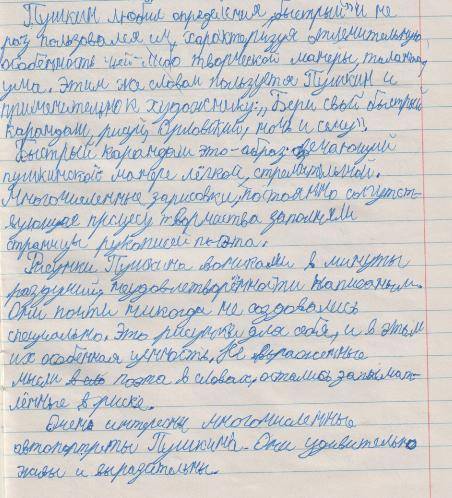 Пушкин любил определения „быстрый" и не
раз пользовался им, характеризуя отличительную
особенность чьей-либо творческой манеры, таланта,
ума. Этим же словом пользуется Пушкин и
применительно к художнику: „Бери свой быстрый
карандаш, рисуй, Орловский, ночь и сечу".
Быстрый карандаш это-образ отвечающий
пушкинской манере лёгкой, стремительной.
Многочисленные зарисовки, постоянно сопутст-
вующая процесу творчества заполняли
страницы рукописей поэта.
Рисунки Пушкина возникали в минуты
раздумий, неудовлетворённости написаным.
Они почти никогда не создовались
специально. Это рисунки для себя, и в этом
их особенная ценность. Не выраженные
мысли поэта в словах, остались запечат-
лённые в риске.
Очень интересны многочисленные
автопортреты Пушкина. Они удивительно
живы и выразательны.